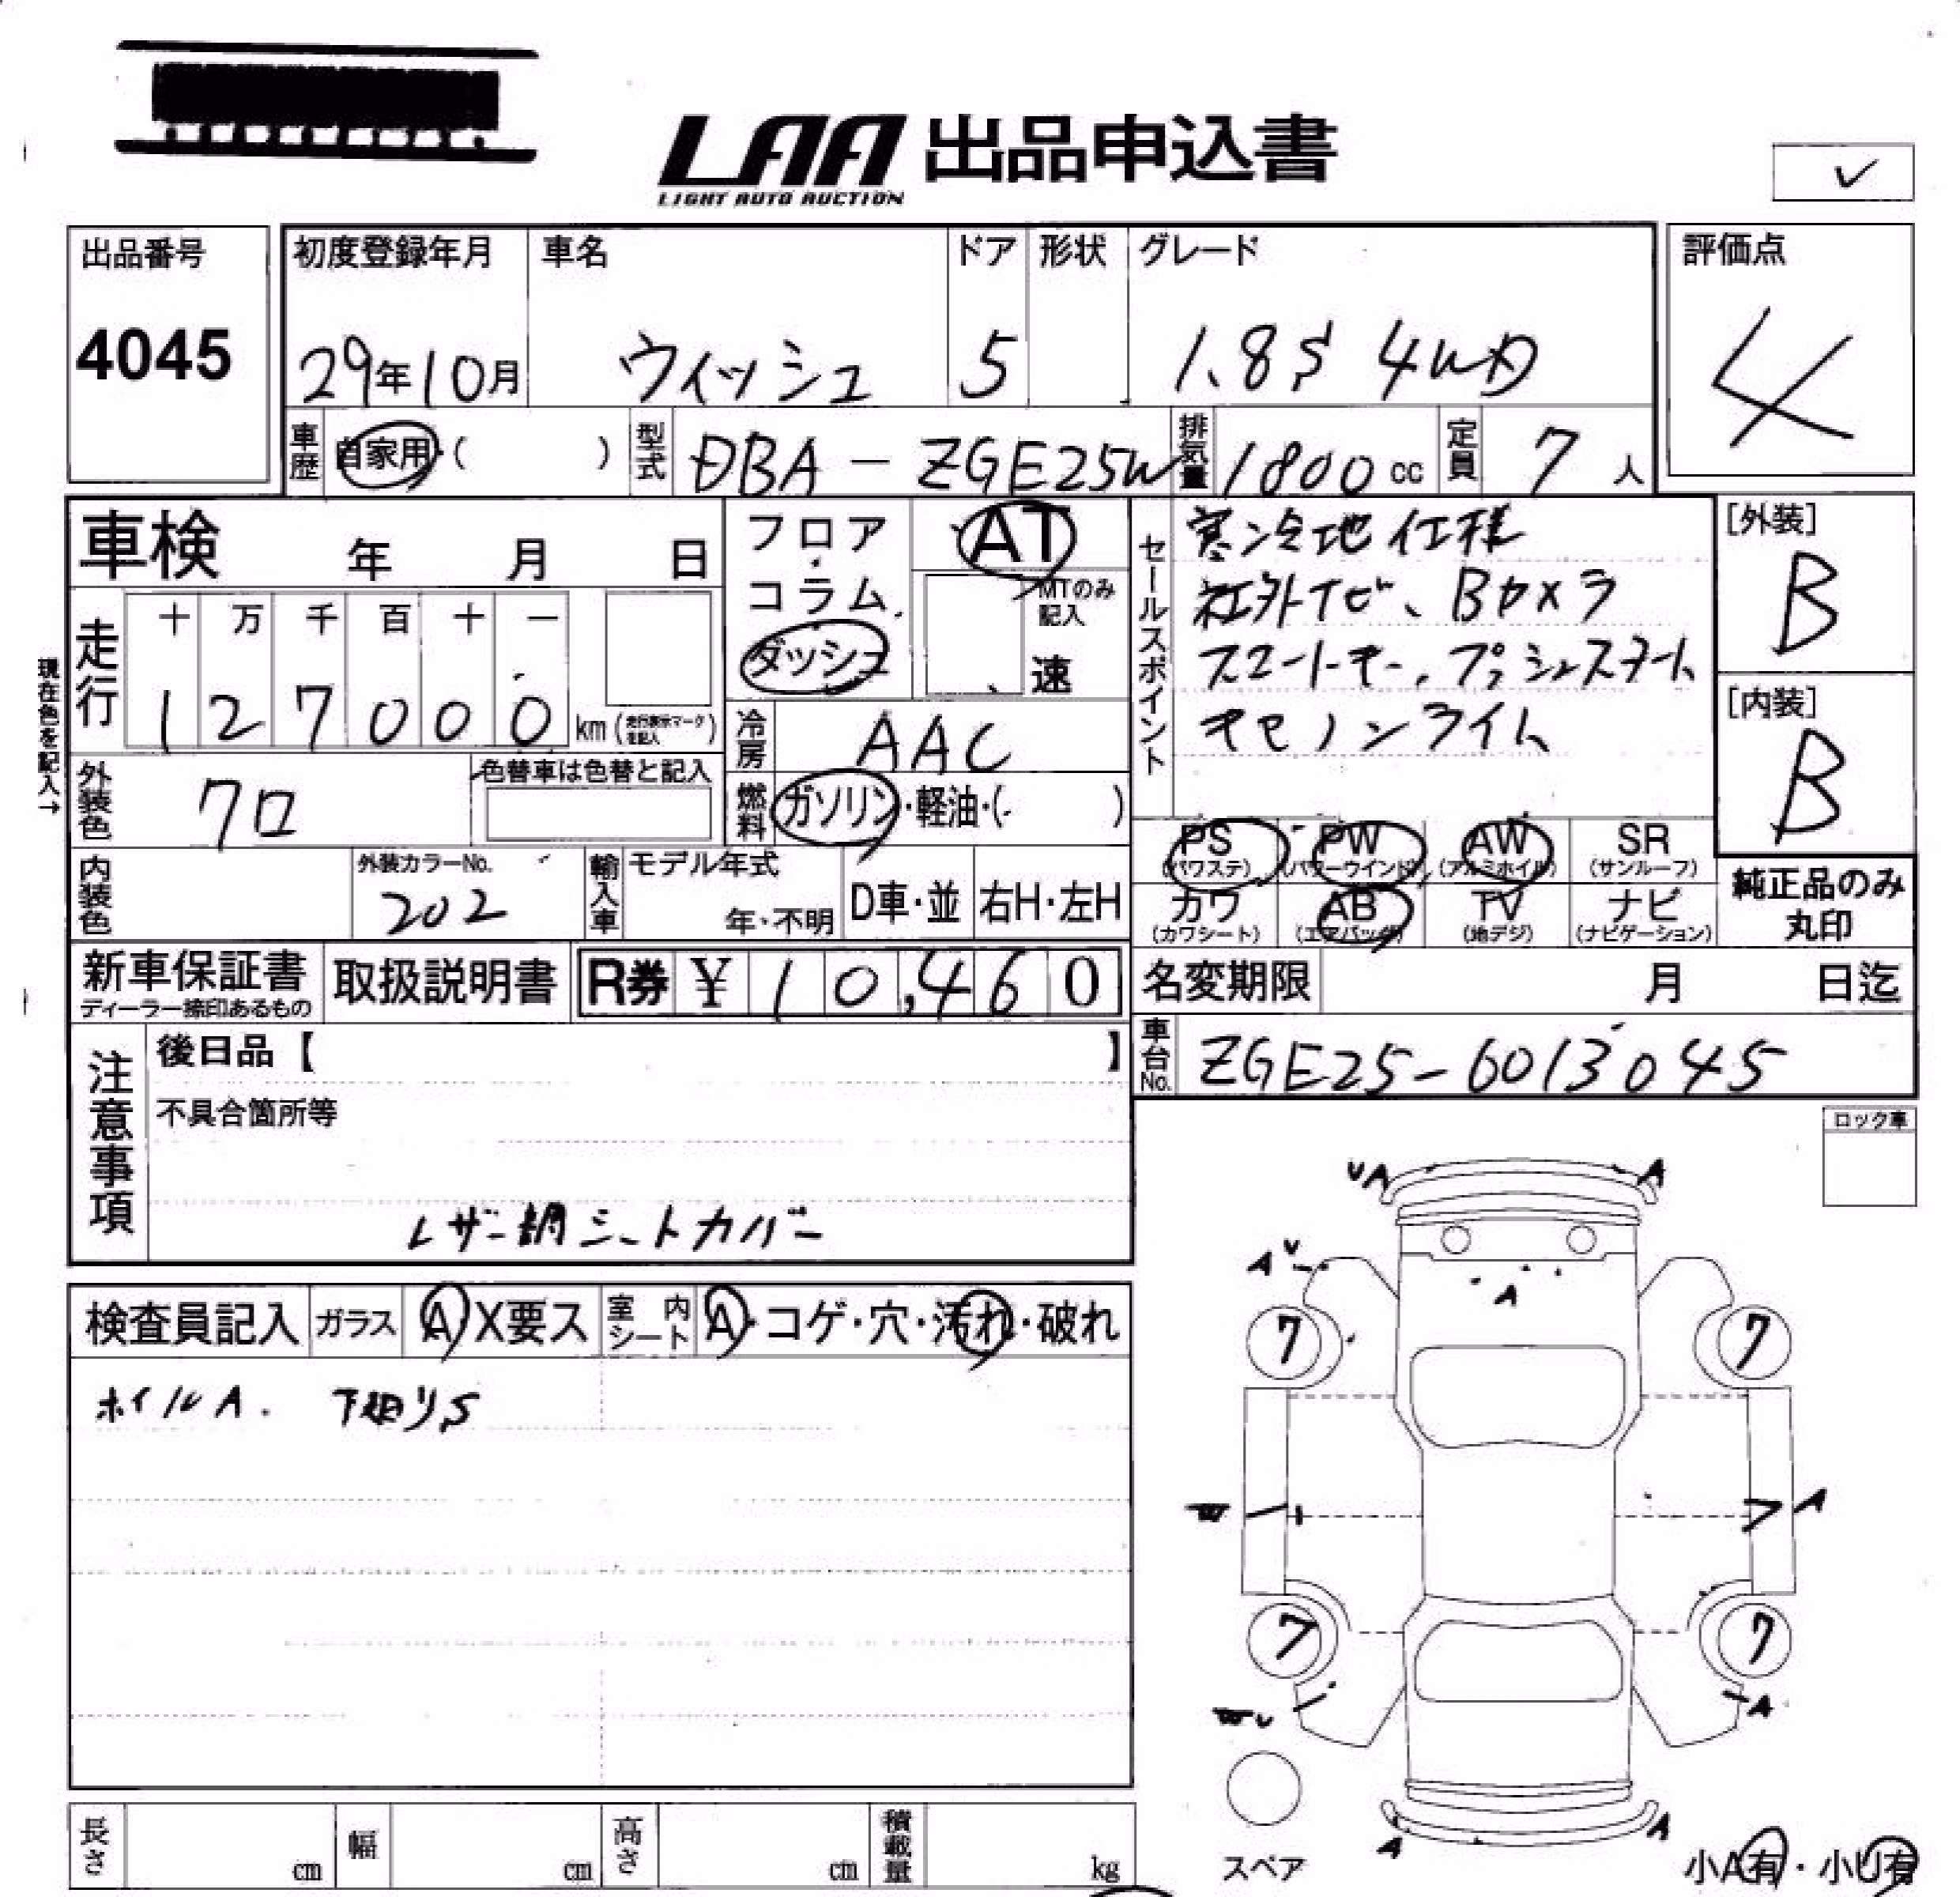 LAA 出品申込書
LIGHT AUTO AUCTION
出品番号
4045
初度登録年月
29年10月
車名
ウィッシュ
ドア
5
形状
グレード
1.8S 4WD
評価点
4
車歴 自家用・( )
型式 DBA-ZGE25W
排気量 1800cc
定員 7人
車検 年 月 日
現在色を記入→
走行
十 万 千 百 十 一
1 2 7 0 0 0 km (走行表示マークを記入)
外装色 クロ
色替車は色替と記入
内装色
外装カラーNo.
202
輸入車
モデル年式
年・不明
D車・並
右H・左H
フロア・コラム・ダッシュ
AT
MTのみ記入
速
冷房 AAC
燃料 ガソリン・軽油・( )
セールスポイント
寒冷地仕様
社外ナビ、Bカメラ
スマートキー、プッシュスタート
キセノンライト
[外装]
B
[内装]
B
PS (パワステ)
PW (パワーウインド)
AW (アルミホイル)
SR (サンルーフ)
カワ (カワシート)
AB (エアバッグ)
TV (地デジ)
ナビ (ナビゲーション)
純正品のみ丸印
新車保証書
ディーラー捺印あるもの
取扱説明書
R券 ¥10,460
名変期限 月 日迄
車台No. ZGE25-6013045
注意事項
後日品【 】
不具合箇所等
レザー調シートカバー
ロック車
検査員記入
ガラス A X要ス
室内シート A・コゲ・穴・汚れ・破れ
ホイルA. 下廻りS
UA
A
A U
A
7
7
W
A
7
7
W U
A
A
A
スペア
小A有・小U有
長さ cm
幅 cm
高さ cm
積載量 kg